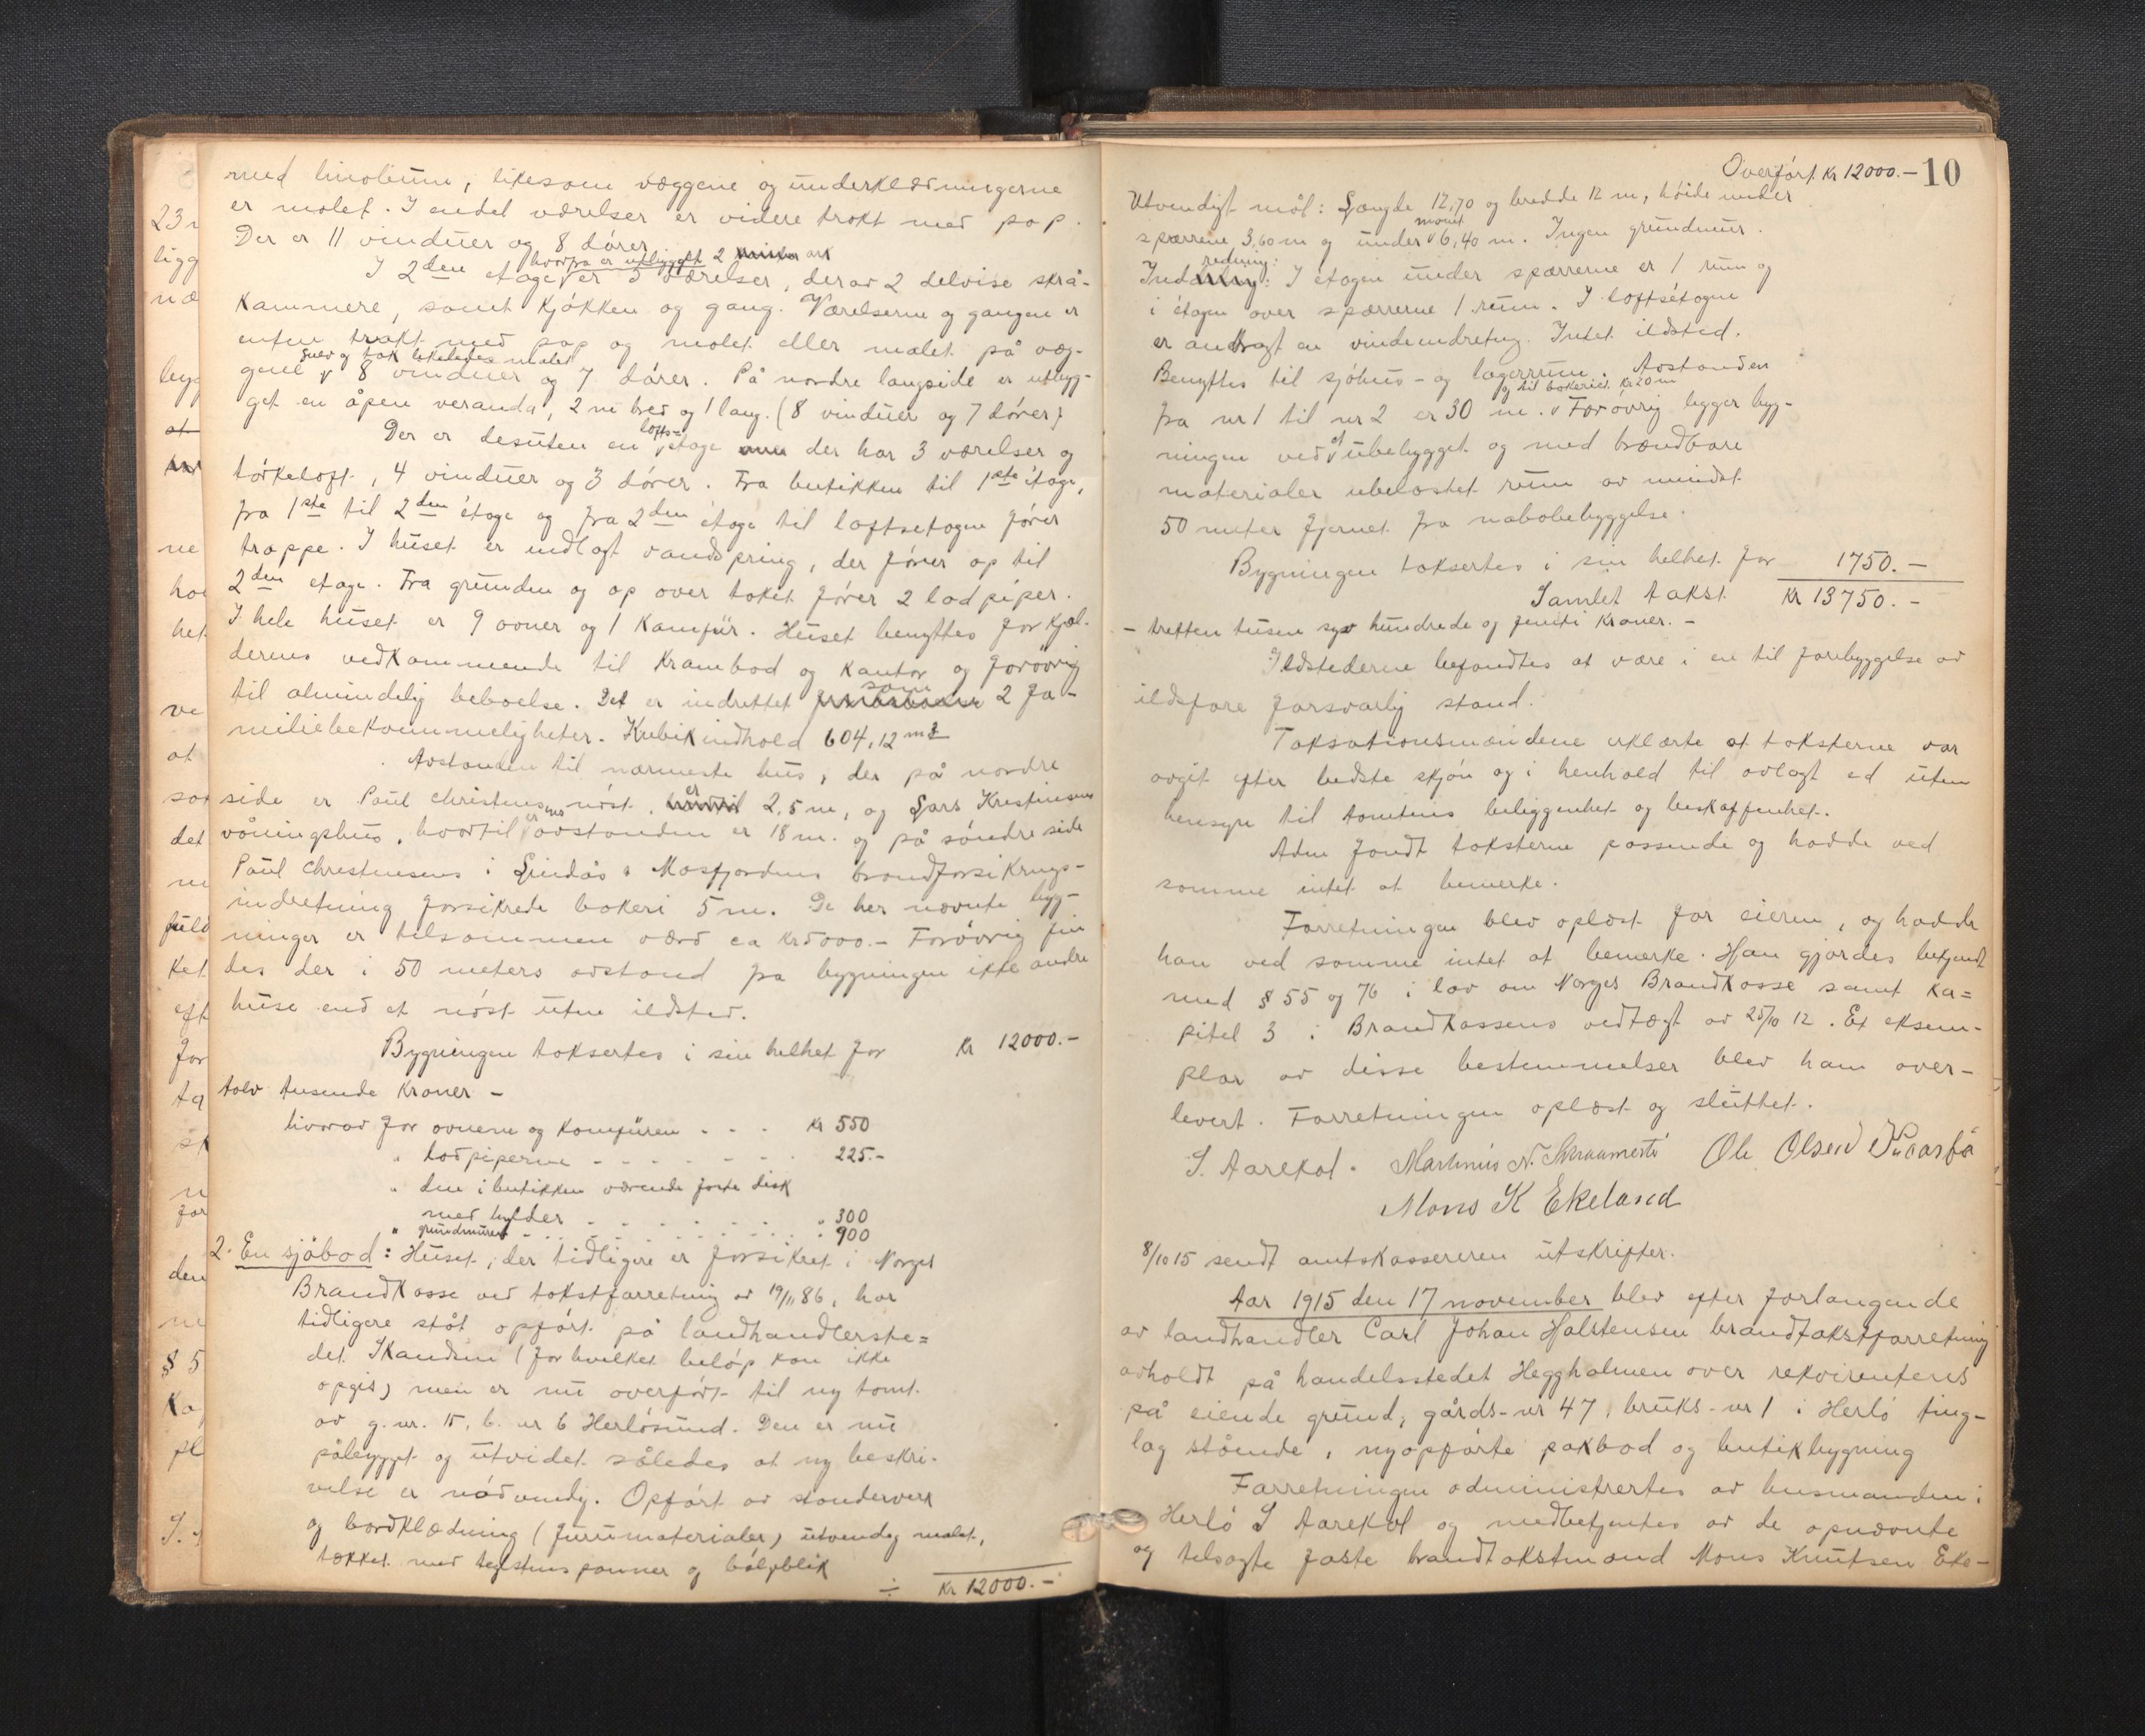 med linoleum, likesom væggene og underklædningerne
er malet. I endel værelser er videre trukt med pap.
Der er 11 vinduer og 8 dører
hvorfra er utbygget 2 ark
I 2den etage er 5 værelser, derav 2 delvise skrå-
kammere, samt kjøkken og gang. Værelserne og gangen er
enten trukt med pap og malet eller malet på væg-
gulv og tak likeledes malet
gene 8 vinduer og 7 dører. På nordre langside er utbyg-
get en åpen veranda, 2 m bred og 1 lang. (8 vinduer og 7 dører)
Der er desuten en lofts-etage der har 3 værelser og
tørkeloft, 4 vinduer og 3 dører. Fra butikken til 1ste étage,
fra 1ste til 2den étage og fra 2den étage til loftsetagen fører
trappe. I huset er indlagt vandspring, der fører op til
2den etage. Fra grunden og op over taket fører 2 lodpiper.
I hele huset er 9 ovner og 1 Kamfür. Huset benyttes for kjæl-
derens vedkommende til Krambod og kantor og forøvrig
til almindelig beboelse. Det er indrettet som 2 fa-
miliebekvemmeligheter. Kubikindhold 604,12 m3
Avstanden til nærmeste hus, der på nordre
side er Paul Christensens nøst, er 2,5 m, og Lars Kristensens
våningshus, hvortil avstanden er 18 m. og på søndre side
Paul Christensens i Lindås & Masfjordens brandforsikrings-
indretning forsikrede bakeri 5 m. De her nævnte byg-
ninger er tilsammen værd ca Kr 5000.- Forøvrig fin
des der i 50 meters avstand fra bygningen ikke andre
huse end et nøst uten ildsted.
Bygningen taksertes i sin helhet for Kr 12000.-
tolv tusende Kroner -
hvorav for ovnene og Komfüren . . . Kr 550
" lodpiperne - - - - - - - 225.-
" den i butikken værende faste disk
med hylder . . . . . . . . 300
" grundmuren . . . . . . . . 900
2. En sjøbod: Huset, der tidligere er forsikret i Norges
Brandkasse ved takstforretning av 19/11 86, har
tidligere ståt opført på landhandlerste=
det Skandsen (for hvilket beløp kan ikke
opgis) men er nu overført til ny tomt
av g. nr. 15, b. nr 6 Herløsund. Den er nu
påbygget og utvidet således at ny beskri-
velse er nødvendig. Opført av stenderverk
og bordklædning (furumaterialer) utvendig malet,
tækket med teglstenspanner og bølgeblik
÷ Kr 12000.-
Overført Kr 12000.- 10
Utvendigt mål: Længde 12,70 og bredde 12 m, høide under
spærrene 3,60 m og under mønet 6,40 m. Ingen grundmur.
Indredning: I etagen under spærrerne er 1 rum og
i étagen over spærrerne 1 rum. I loftsétagen
er anbragt en vindeindretning. Intet ildsted.
Benyttes til sjøhus- og lagerrum. Avstanden
og til bakeriet Kr 20 m
fra nr 1 til nr 2 er 30 m. Forøvrig ligger byg-
ningen ved et ubebygget og med brændbare
materialer ubelastet rum av mindst
50 meter fjernet fra nabobebyggelse.
Bygningen taksertes i sin helhet for 1750.-
Samlet takst Kr 13750.-
- tretten tusen syv hundrede og femti Kroner. -
Ildstederne befandtes at være i en til forebyggelse av
ildsfare forsvarlig stand.
Taksationsmændene erklærte at taksterne var
avgit efter bedste skjøn og i henhold til avlagt ed uten
hensyn til tomtens beliggenhet og beskaffenhet.
Adm fandt taksterne passende og hadde ved
samme intet at bemerke.
Forretningen blev oplæst for eieren, og hadde
han ved samme intet at bemerke. Han gjordes bekjendt
med § 55 og 76 i lov om Norges Brandkasse samt Ka=
pitel 3 i Brandkassens vedtægt av 25/10 12. Et eksem-
plar av disse bestemmelser blev ham over-
levert. Forretningen oplæst og sluttet.
S. Aarekol. Martinus N. Ole Olsen
Mons K Ekeland
8/10 15 sendt amtskassereren utskrifter.
Aar 1915 den 17 november blev efter forlangende
av landhandler Carl Johan Halstensen brandtakstforretning
avholdt på handelsstedet Heggholmen over rekvirentens
på eiende grund, gårds-nr 47, bruks-nr 1 i Herlø ting-
lag stående, nyopførte pakbod og butikbygning
Forretningen administrertes av lensmanden i
Herlø S Aarekol og medbetjentes av de opnævnte
og tilsagte faste brandtakstmænd Mons Knutsen Eke-